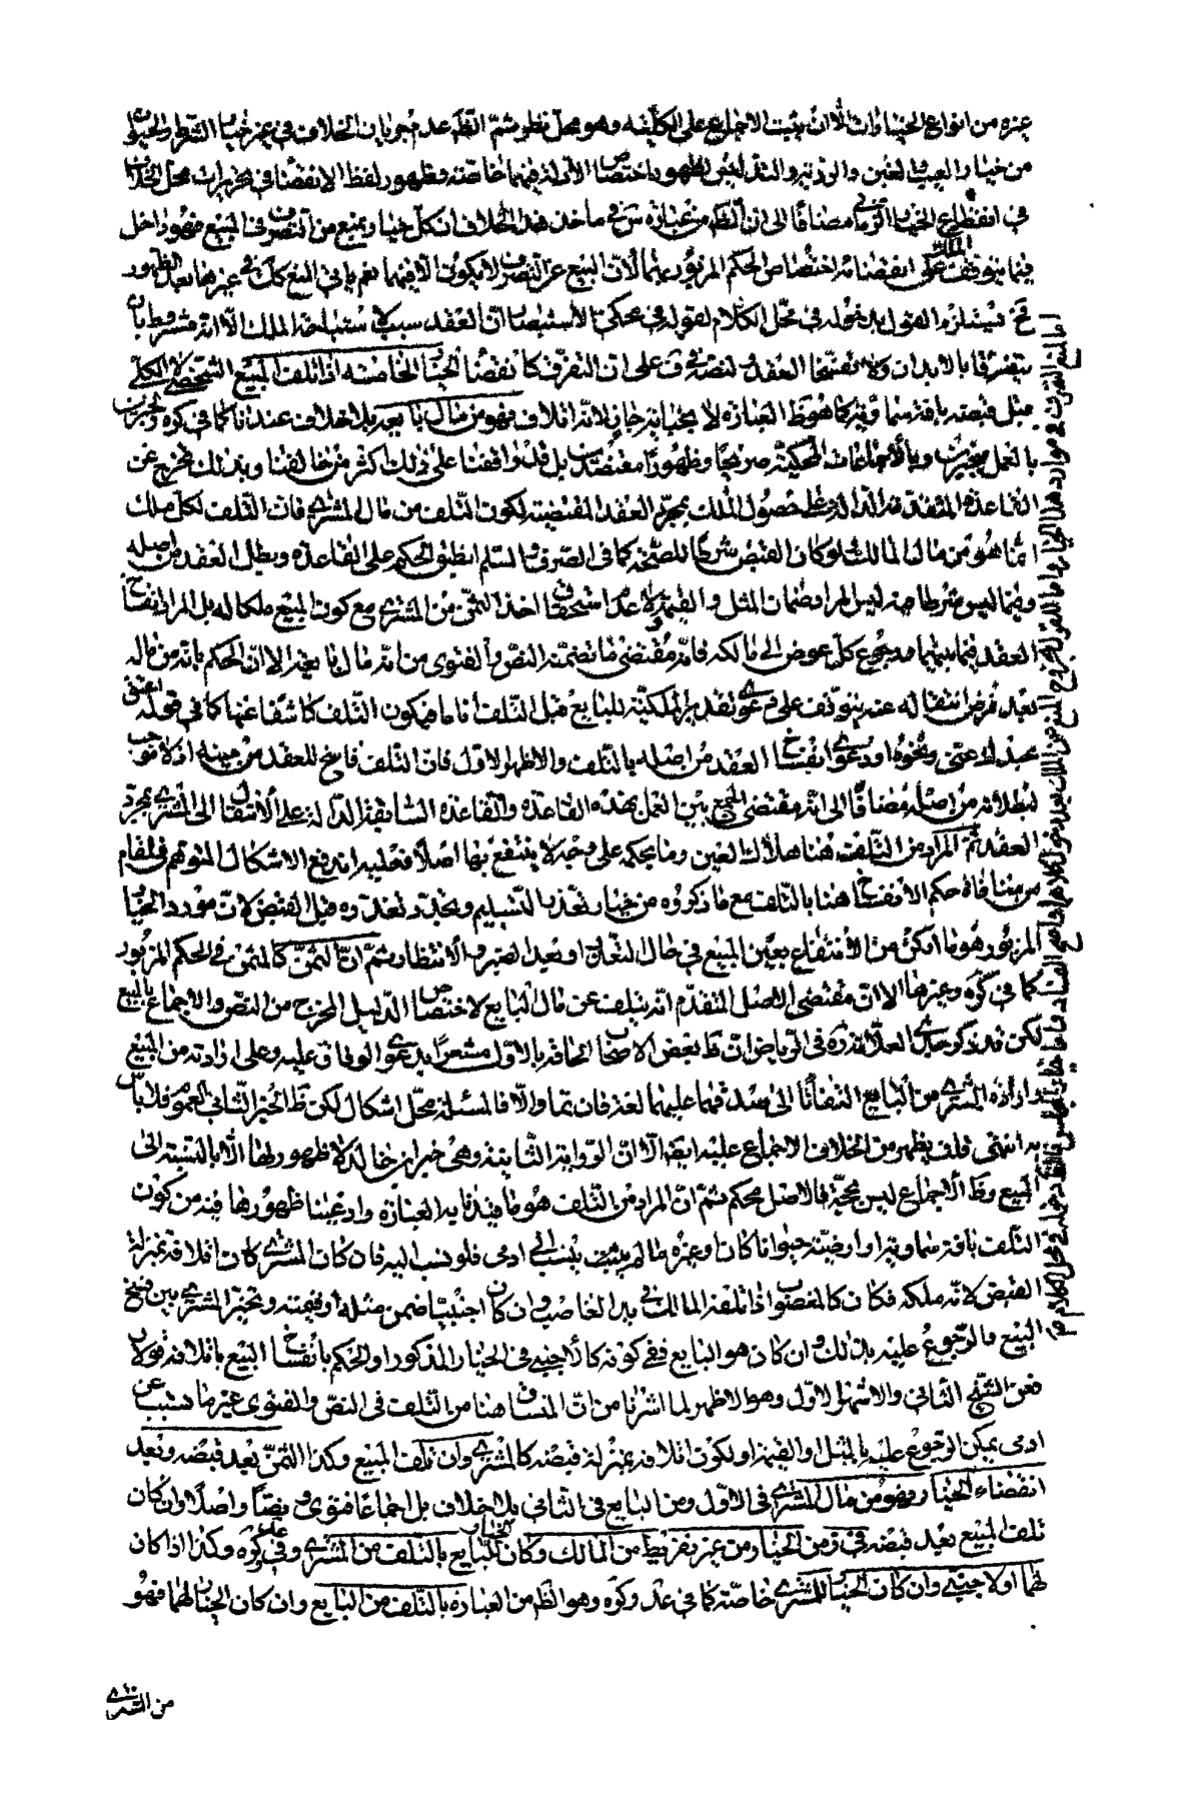 غيره من انواع الخيارات الا ان يثبت الاجماع على الكلية وهو محل نظر ثم الظ عدم جريان الخلاف فى غير خيار الشرط والحيوان
من خيار العيب والغبن والرؤية والتدليس لظهور اختصاص الادلة فيهما خاصة وظهور لفظ الانقضاء فى تحريرات محل الخلاف
فى انقطاع الخيار الزمانى مضافا الى ان الظ من عبارة س فى ماخذ هذا الخلاف ان كل خيار يمنع من التصرف فى المبيع فهو داخل
فيما يتوقف الملك على انقضائه اختصاص الحكم المزبور بهما لان المنع عن التصرف لا يكون الا فيهما نعم ياتى المنع كك فى غيرها بعد الظهور
فح يستلزم القول بدخوله فى محل الكلام لقوله فى محكى الاستبصار ان العقد سبب لاستباحة الملك الا انه مشروط بان
يتفرقا بالابدان ولا يفسخا العقد ونصه فى ف على ان التفرق كانقضاء الخيار الخامسة اذا تلف المبيع الشخصى لا الكلى
قبل قبضه بافة سماوية كما هو ظ العبارة لا بجناية جان لانه اتلاف فهو من مال بايعه بلا خلاف عندنا كما فى كره
بالعمل وبالاجماعات المحكية صريحا وظهورا معتضدين بل قد وافقنا على ذلك اكثر من خالفنا وبذلك نخرج عن
القاعدة المتقدمة الدالة على حصول الملك بمجرد العقد المقتضية لكون التلف من مال المشترى فان التلف لكل ملك
انما هو من مال المالك لو كان القبض شرطا للصحة كما فى الصرف والسلم انطبق الحكم على القاعدة وبطل العقد من اصله
وفيما ليس شرطا فيه ليس المراد ضمان المثل والقيمة ولا عدم استحقاق اخذ الثمن من المشترى مع كون المبيع ملكا له بل المراد انفساخ
العقد فيما بينهما ورجوع كل عوض الى مالكه فانه مقتضى ما تضمنه النص والفتوى من انه مال بايعه الا ان الحكم بانه من ماله
بعد فرض انتقاله عنه يتوقف على دعوى تقدير الملكية للبايع قبل التلف انا ما فيكون التلف كاشفا عنها كما فى قوله اعتق
عبدك عنى ونحوه او دعوى انفساخ العقد من اصله بالتلف والاظهر الاول فان التلف فاسخ للعقد من حينه اذ لا موجب
لبطلانه من اصله مضافا الى انه مقتضى الجمع بين العمل بهذه القاعدة والقاعدة السابقة الدالة على الانتقال الى المشترى بمجرد
العقد ثم المراد من التلف هنا هلاك العين وما بحكمه على وجه لا ينتفع بها اصلا فعليه اندفع الاشكال المتوهم فى المقام
من منافاة حكم الانفساخ هنا بالتلف مع ما ذكروه من خيار تعذر التسليم وتجدد تعذره قبل القبض لان مورد الخيار
المزبور هو ما امكن من الانتفاع بعين المبيع فى حال التعذر او بعد الصبر والانتظار ثم ان الثمن كالمثمن فى الحكم المزبور
كما فى كره وغيرها الا ان مقتضى الاصل المتقدم انه يتلف عن مال البايع لاختصاص الدليل المخرج من النص والاجماع بالمبيع
لكن قد ذكر خالى العلامة قده فى الرياض ان ظ بعض الاصحاب الحاقه بالاول مشعرا بدعوى الوفاق عليه وعلى ارادته من المبيع
وارادة المشترى من البايع التفاتا الى صدقهما عليهما لغة فان تم والا فالمسئلة محل اشكال لكن ظ الخبر الثانى العموم فلا باس
به انتهى فلم يظهر من الخلاف الاجماع عليه ايضا الا ان الرواية الثانية وهى خبر ابن خالد لا ظهور لها الا بالنسبة الى
المبيع وظ الاجماع ليس بحجة فالاصل محكم ثم ان المراد من التلف هو ما قيدنا به العبارة وادعينا ظهورها فيه من كون
التلف بافة سماوية او ارضية حيوانا كان او غيره ما لم يثبت بنسب الى ادمى فلو نسب اليه فان كان المشترى كان اتلافه بمنزلة
القبض لانه ملكه فكان كالمغصوب اذا تلفه المالك فى يد الغاصب وان كان اجنبيا ضمن مثله او قيمته وتخير المشترى بين فسخ
البيع والرجوع عليه بذلك وان كان هو البايع ففى كونه كالاجنبى فى الخيار المذكور او الحكم بانفساخ البيع باتلافه قولان
فعن الشيخ الثانى والاشهر الاول وهو الاظهر لما اشرنا من ان المنساق هنا من التلف فى النص والفتوى غيرها بسبب عن
ادمى يمكن الرجوع عليه بالمثل او القيمة او لكون اتلافه بمنزلة قبضه كالمشترى وان تلف المبيع وكذا الثمن بعد قبضه وبعد
انقضاء الخيار فهو من مال المشترى فى الاول ومن البايع فى الثانى بلا خلاف بل اجماعا فتوى ونصا واصلا وان كان
تلف المبيع بعد قبضه فى زمن الخيار من غير تفريط من المالك وكان الخيار للبايع بالتلف من المشترى وفى كره وكذا اذا كان
لهما او لاجنبى وان كان الخيار للمشترى خاصة كما فى عد وكره وهو الظ من العبارة بالتلف من البايع وان كان الخيار لهما فهو
من المشترى